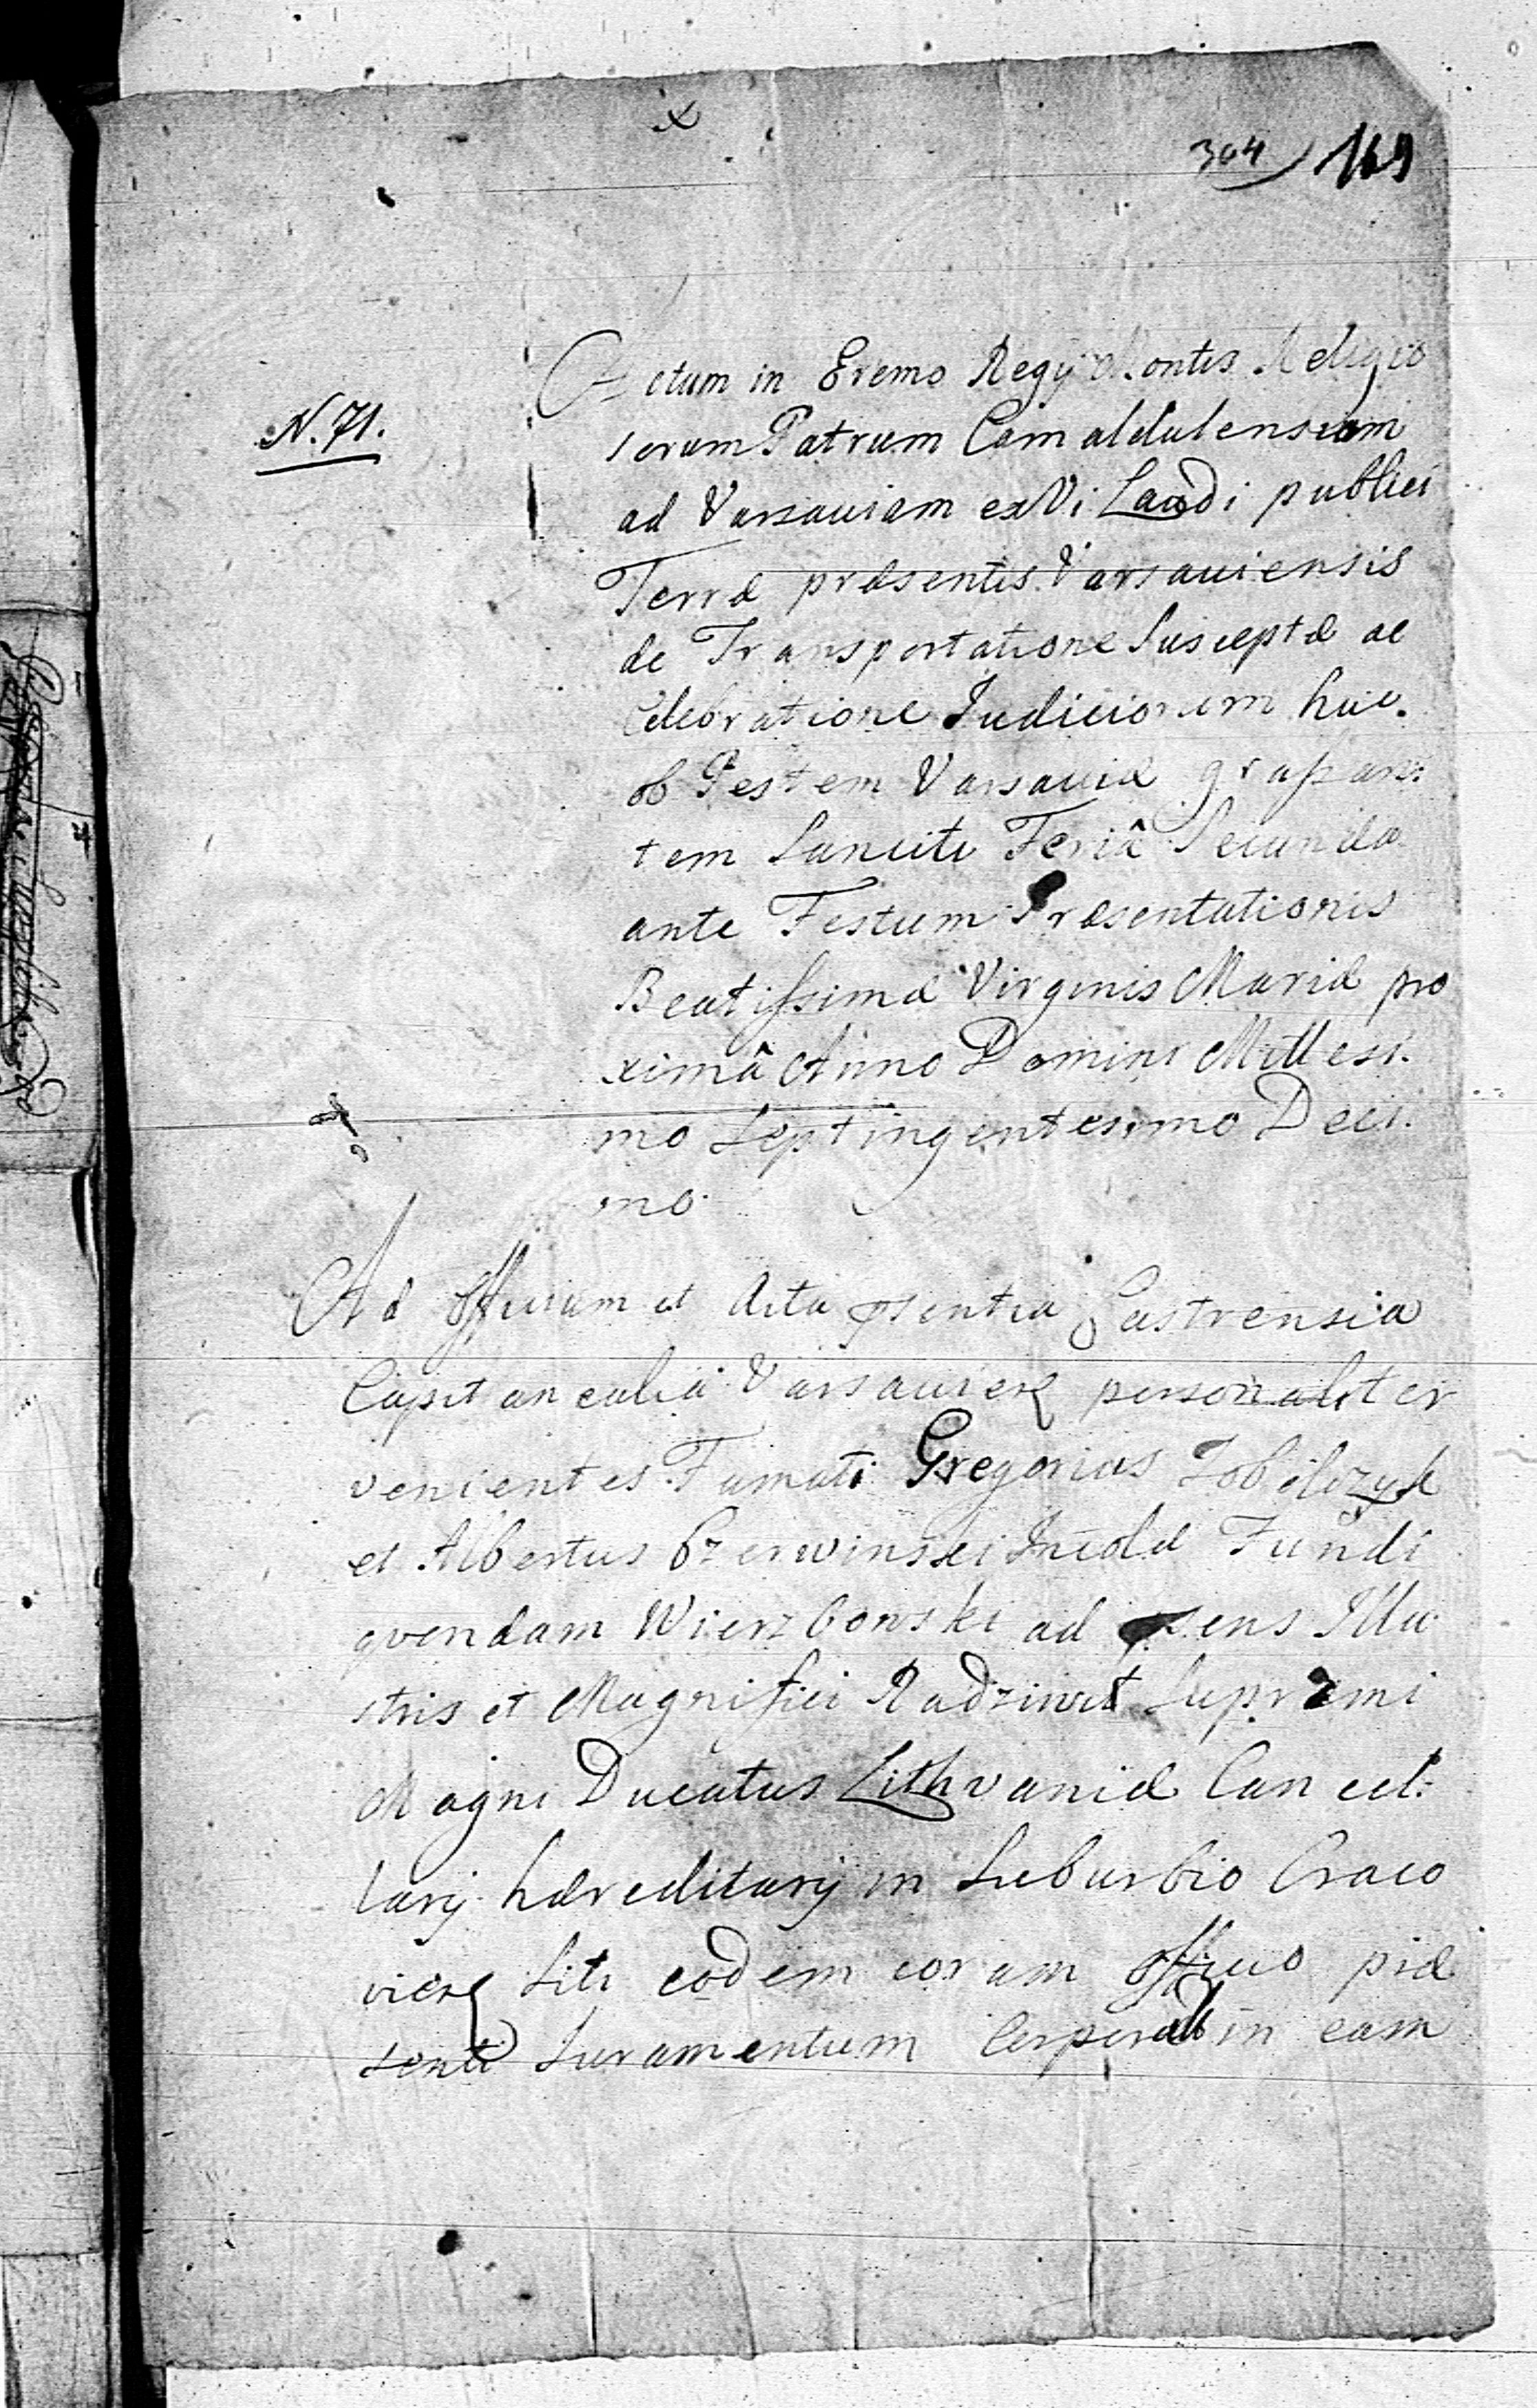 x
304 169
N. 71.
Actum in Eremo Regij Montis Religio
sorum Patrum Camaldulensium
ad Varsauiam ex Vi Laudi publici
Terræ præsentis Varsauiensis
de Transportatione Susceptæ ac
Celebratione Iudiciorum huc
ob Pestem Varsauiæ grassan:
tem Sanciti Feriâ Secunda
ante Festum Præsentationis
Beatissimæ Virginis Mariæ pro
ximâ Anno Domini Millesi.
mo Septingentesimo Deci.
mo
Ad Officium et Acta psentia Castrensia
Capitanealia Varsavien personaliter
venientes Famati Gregorius
et Albertus Czerwinski Incolæ Fundi
qvondam Wierzbowski ad psens Illu
stris et Magnifici Radziwił Supremi
Magni Ducatus Lithvaniæ Cancel:
larij hæreditarij in Suburbio Craco
vien Siti eodem coram Officio præ
senti Iuramentum Corporale in eam